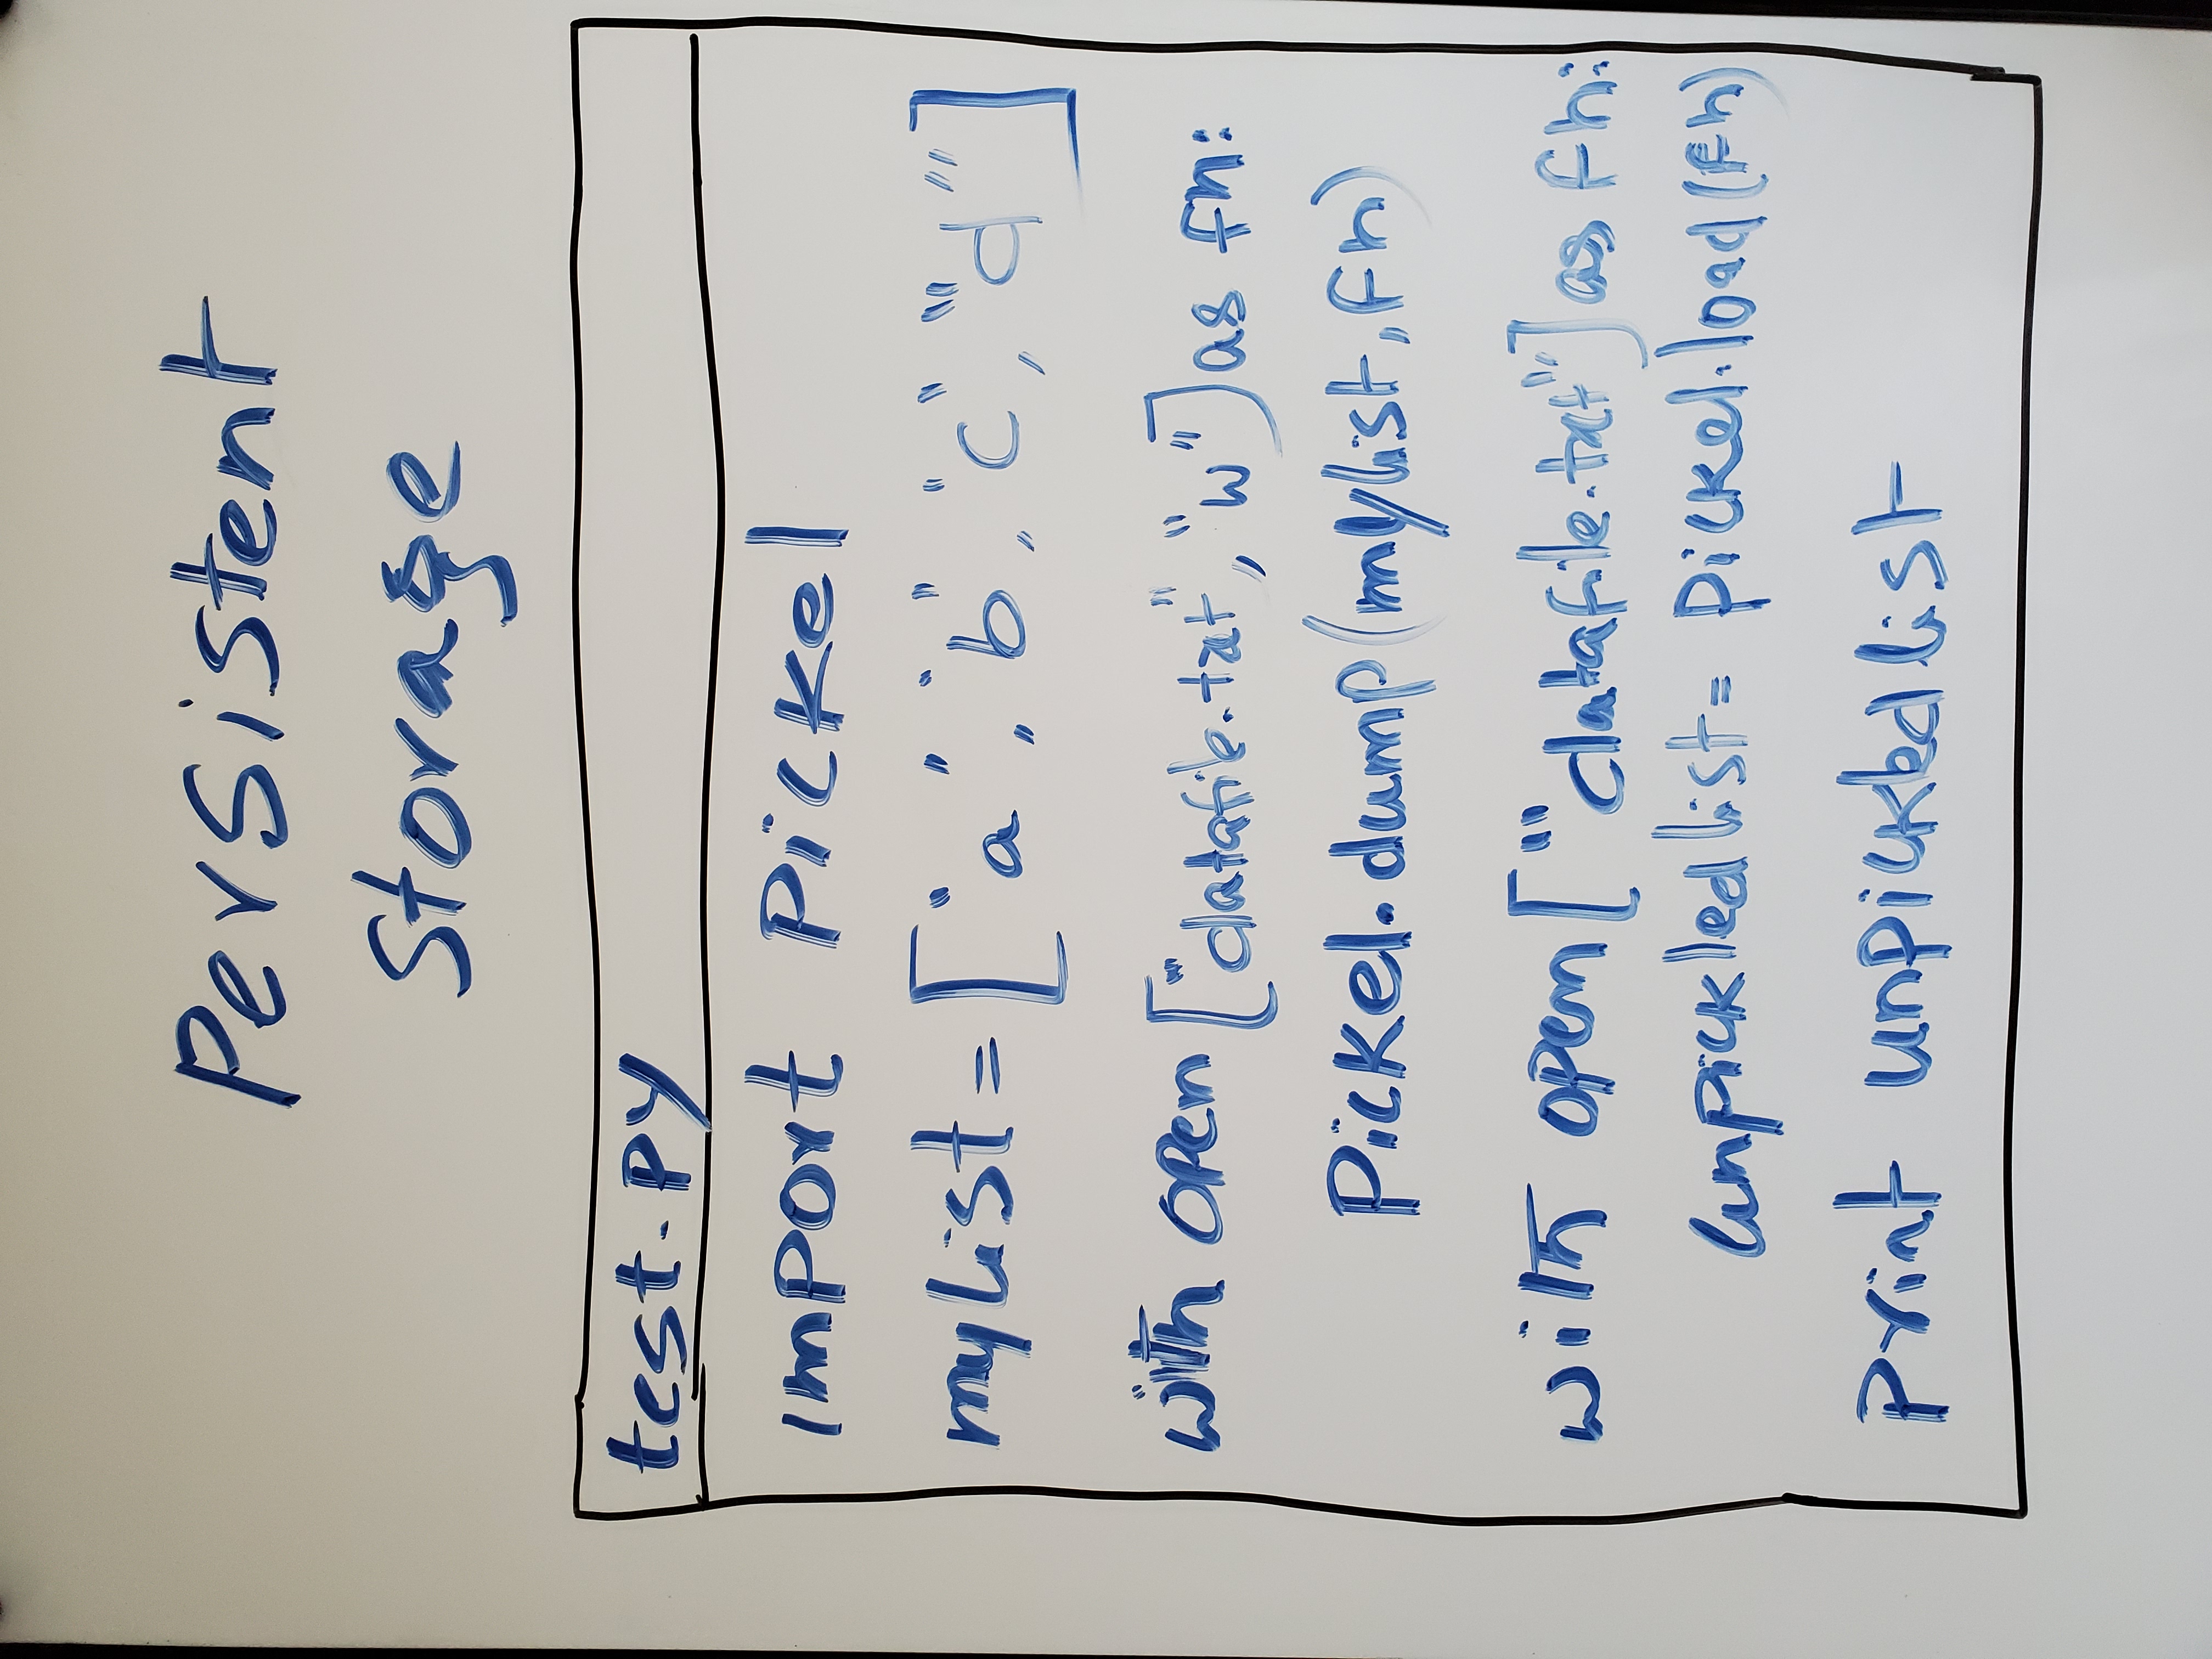 Persistent
Storage
test.py
import Pickel
mylist = ["a", "b", "c", "d"]
with open ["datafile.txt", "w"] as fh:
Pickel.dump(mylist, fh)
with open ["datafile.txt"] as fh:
unpickledlist = Pickel.load(fh)
print unpickledlist